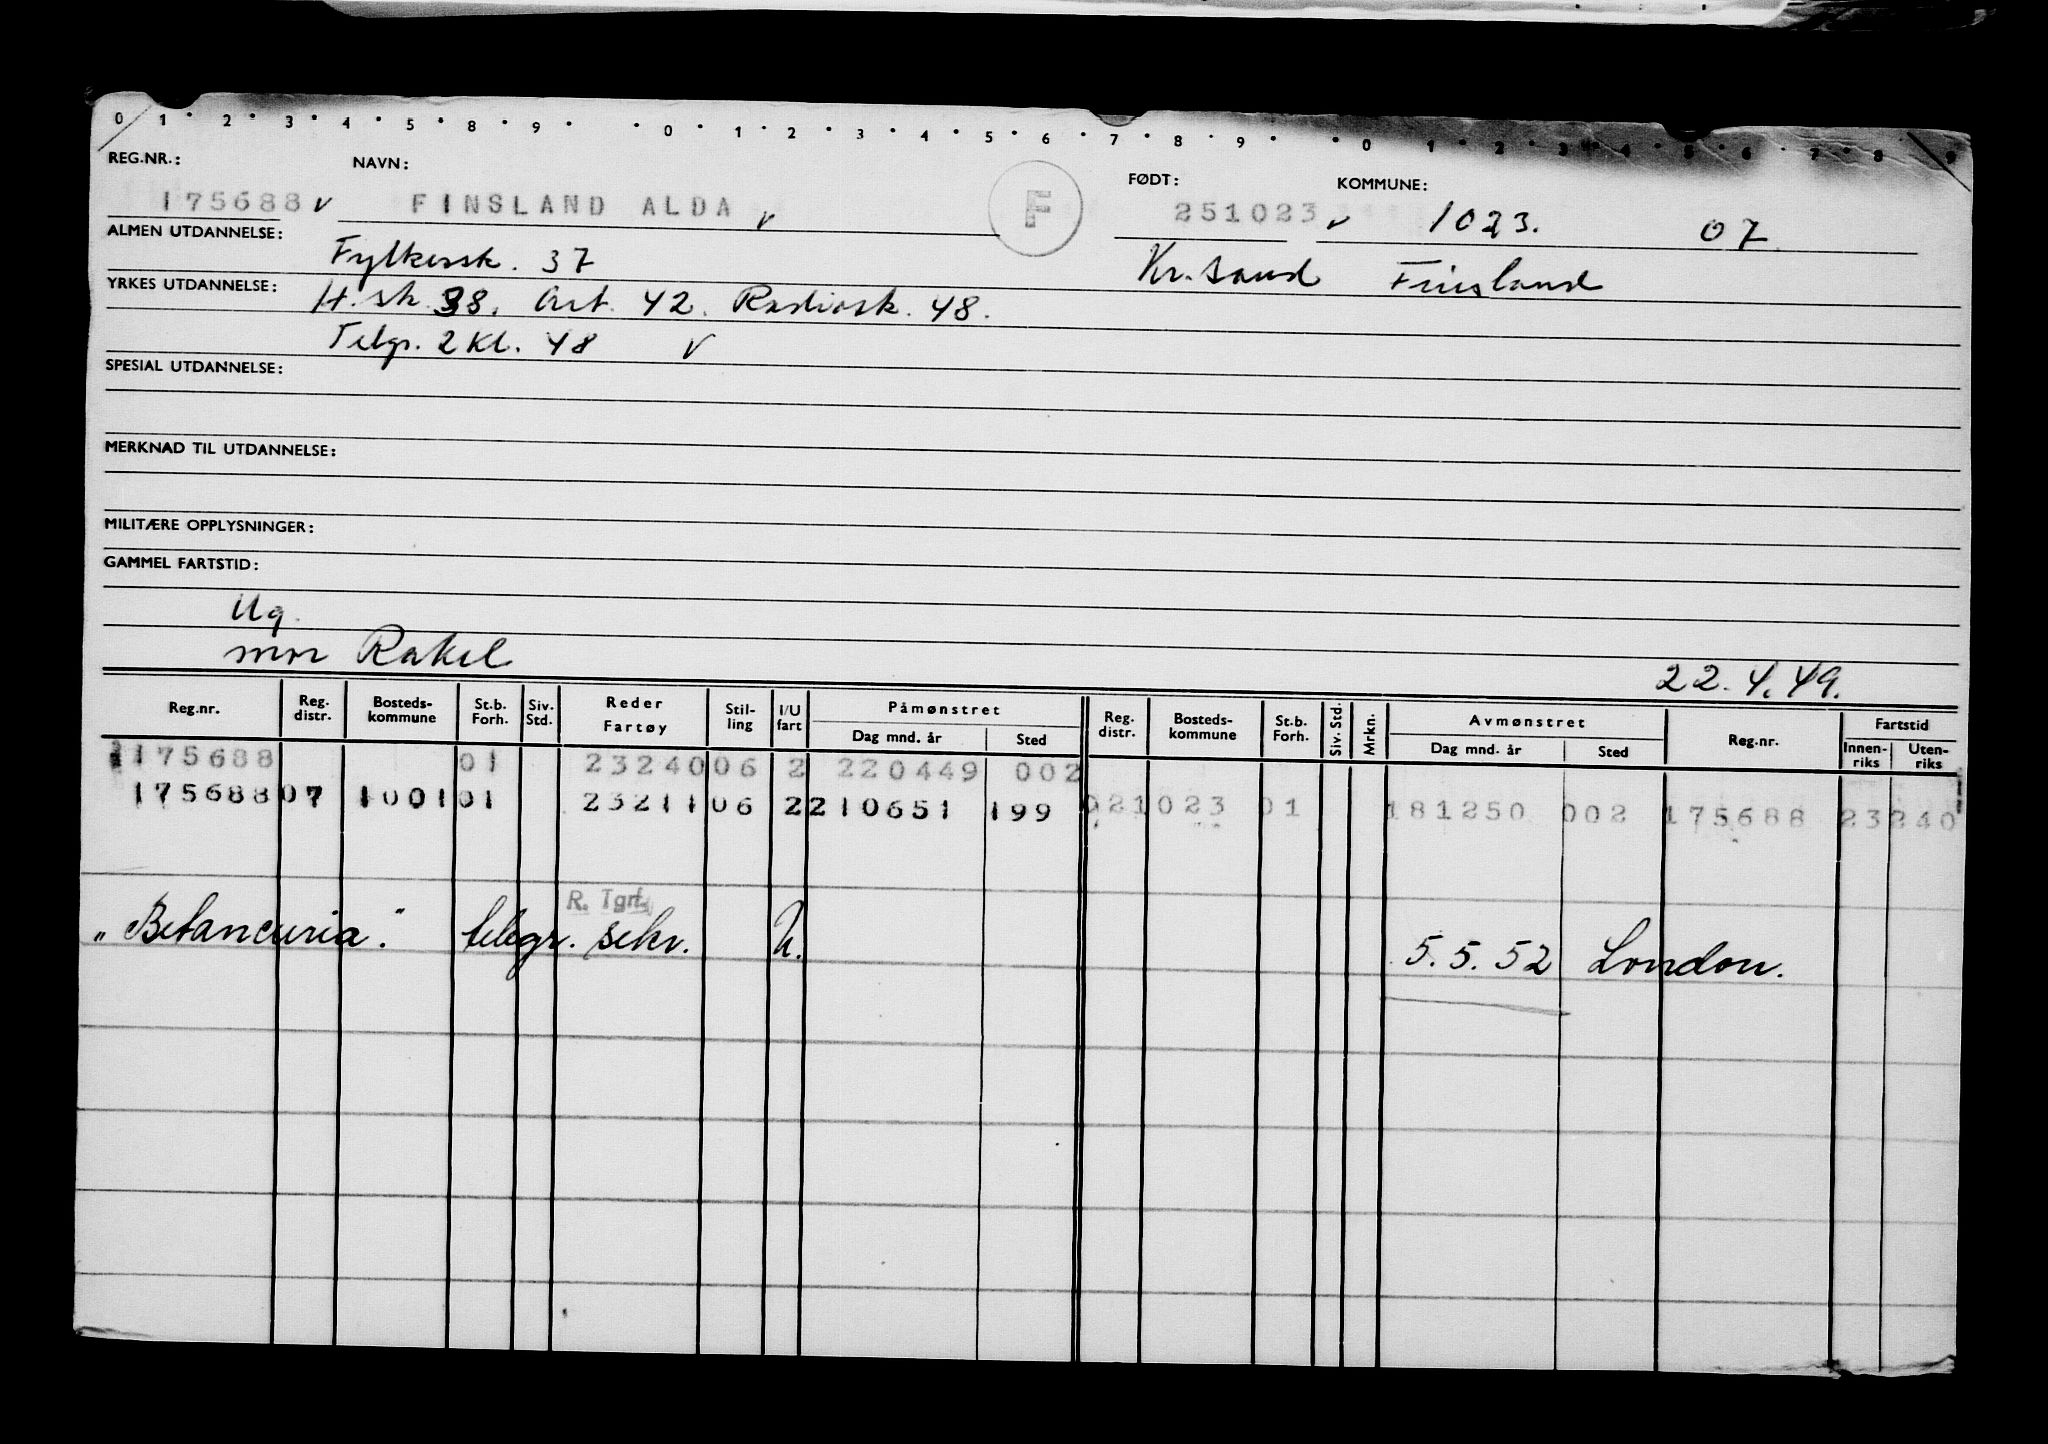 0 1 2 3 4 5 8 9 0 1 2 3 4 5 6 7 8 9 0 1 2 3 4 5 6 7 8 9
REG.NR.: NAVN: FØDT: KOMMUNE:
175688 v FINSLAND ALDA v F 251023 v 1023. 07
ALMEN UTDANNELSE: Fylkessk. 37 Kr.sand Finsland
YRKES UTDANNELSE: H.sk. 38. Art. 42. Radiosk. 48.
Telgr. 2 Kl. 48 v
SPESIAL UTDANNELSE:
MERKNAD TIL UTDANNELSE:
MILITÆRE OPPLYSNINGER:
GAMMEL FARTSTID:
Ug.
mor Rakel
22.4.49.
Reg.nr. Reg. distr. Bosteds-kommune St.b. Forh. Siv. Std. Reder Fartøy Stil-ling I/U fart Påmønstret Dag mnd. år Sted Reg. distr. Bosteds-kommune St.b. Forh. Siv. Std. Mrkn. Avmønstret Dag mnd. år Sted Reg.nr. Fartstid Innen-riks Uten-riks
175688 01 23240 06 2 220449 002
175688 07 1001 01 23211 06 2 210651 199 02 1023 01 181250 002 175688 23240
R. Tgrf.
"Betancuria." telegr. sekr. U. 5.5.52 London.